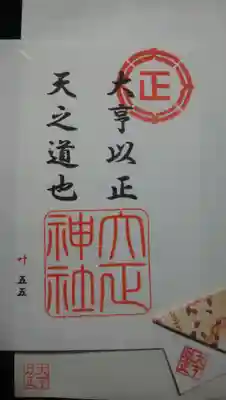 正
大亨以正
天之道也
大正
神社
叶 五五